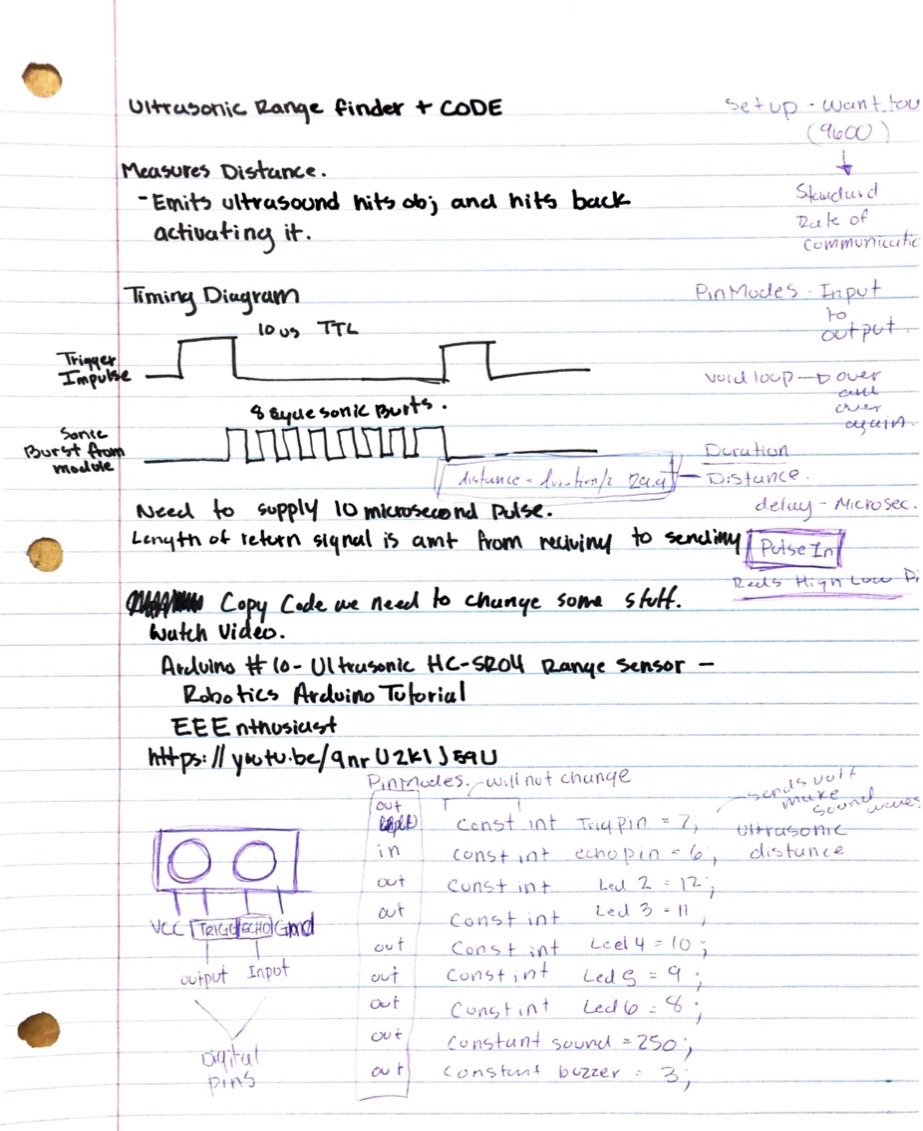 Ultrasonic Range finder + CODE
Setup - want to
(9600)
Standard
Rate of
Communicatio
Measures Distance.
- Emits ultrasound hits obj and hits back
activating it.
Timing Diagram
10 us TTL
Trigger
Impulse
8 cycle sonic Burts.
Sonic
Burst from
module
PinModes - Input
to
output.
void loop → over
and
over
again.
Duration
Distance.
distance = duration/2
delay - Microsec.
Need to supply 10 microsecond Pulse.
Length of return signal is amt from reciving to sending
Pulse In
Reads High Low Pi
Copy Code we need to change some stuff.
Watch Video.
Arduino #10 - Ultrasonic HC-SR04 Range Sensor -
Robotics Arduino Tutorial
EEEnthusiast
PinModes. will not change
sends volt
make
sound waves
ultrasonic
distance
out const int Trigpin = 7;
in const int echopin = 6;
out const int Led 2 = 12;
out const int Led 3 = 11
out const int Led 4 = 10;
out const int Led 5 = 9;
out Const int Led 6 = 8;
out Constant sound = 250;
out constant buzzer = 3;
VCC TRIG ECHO Gnd
output Input
Digital
pins